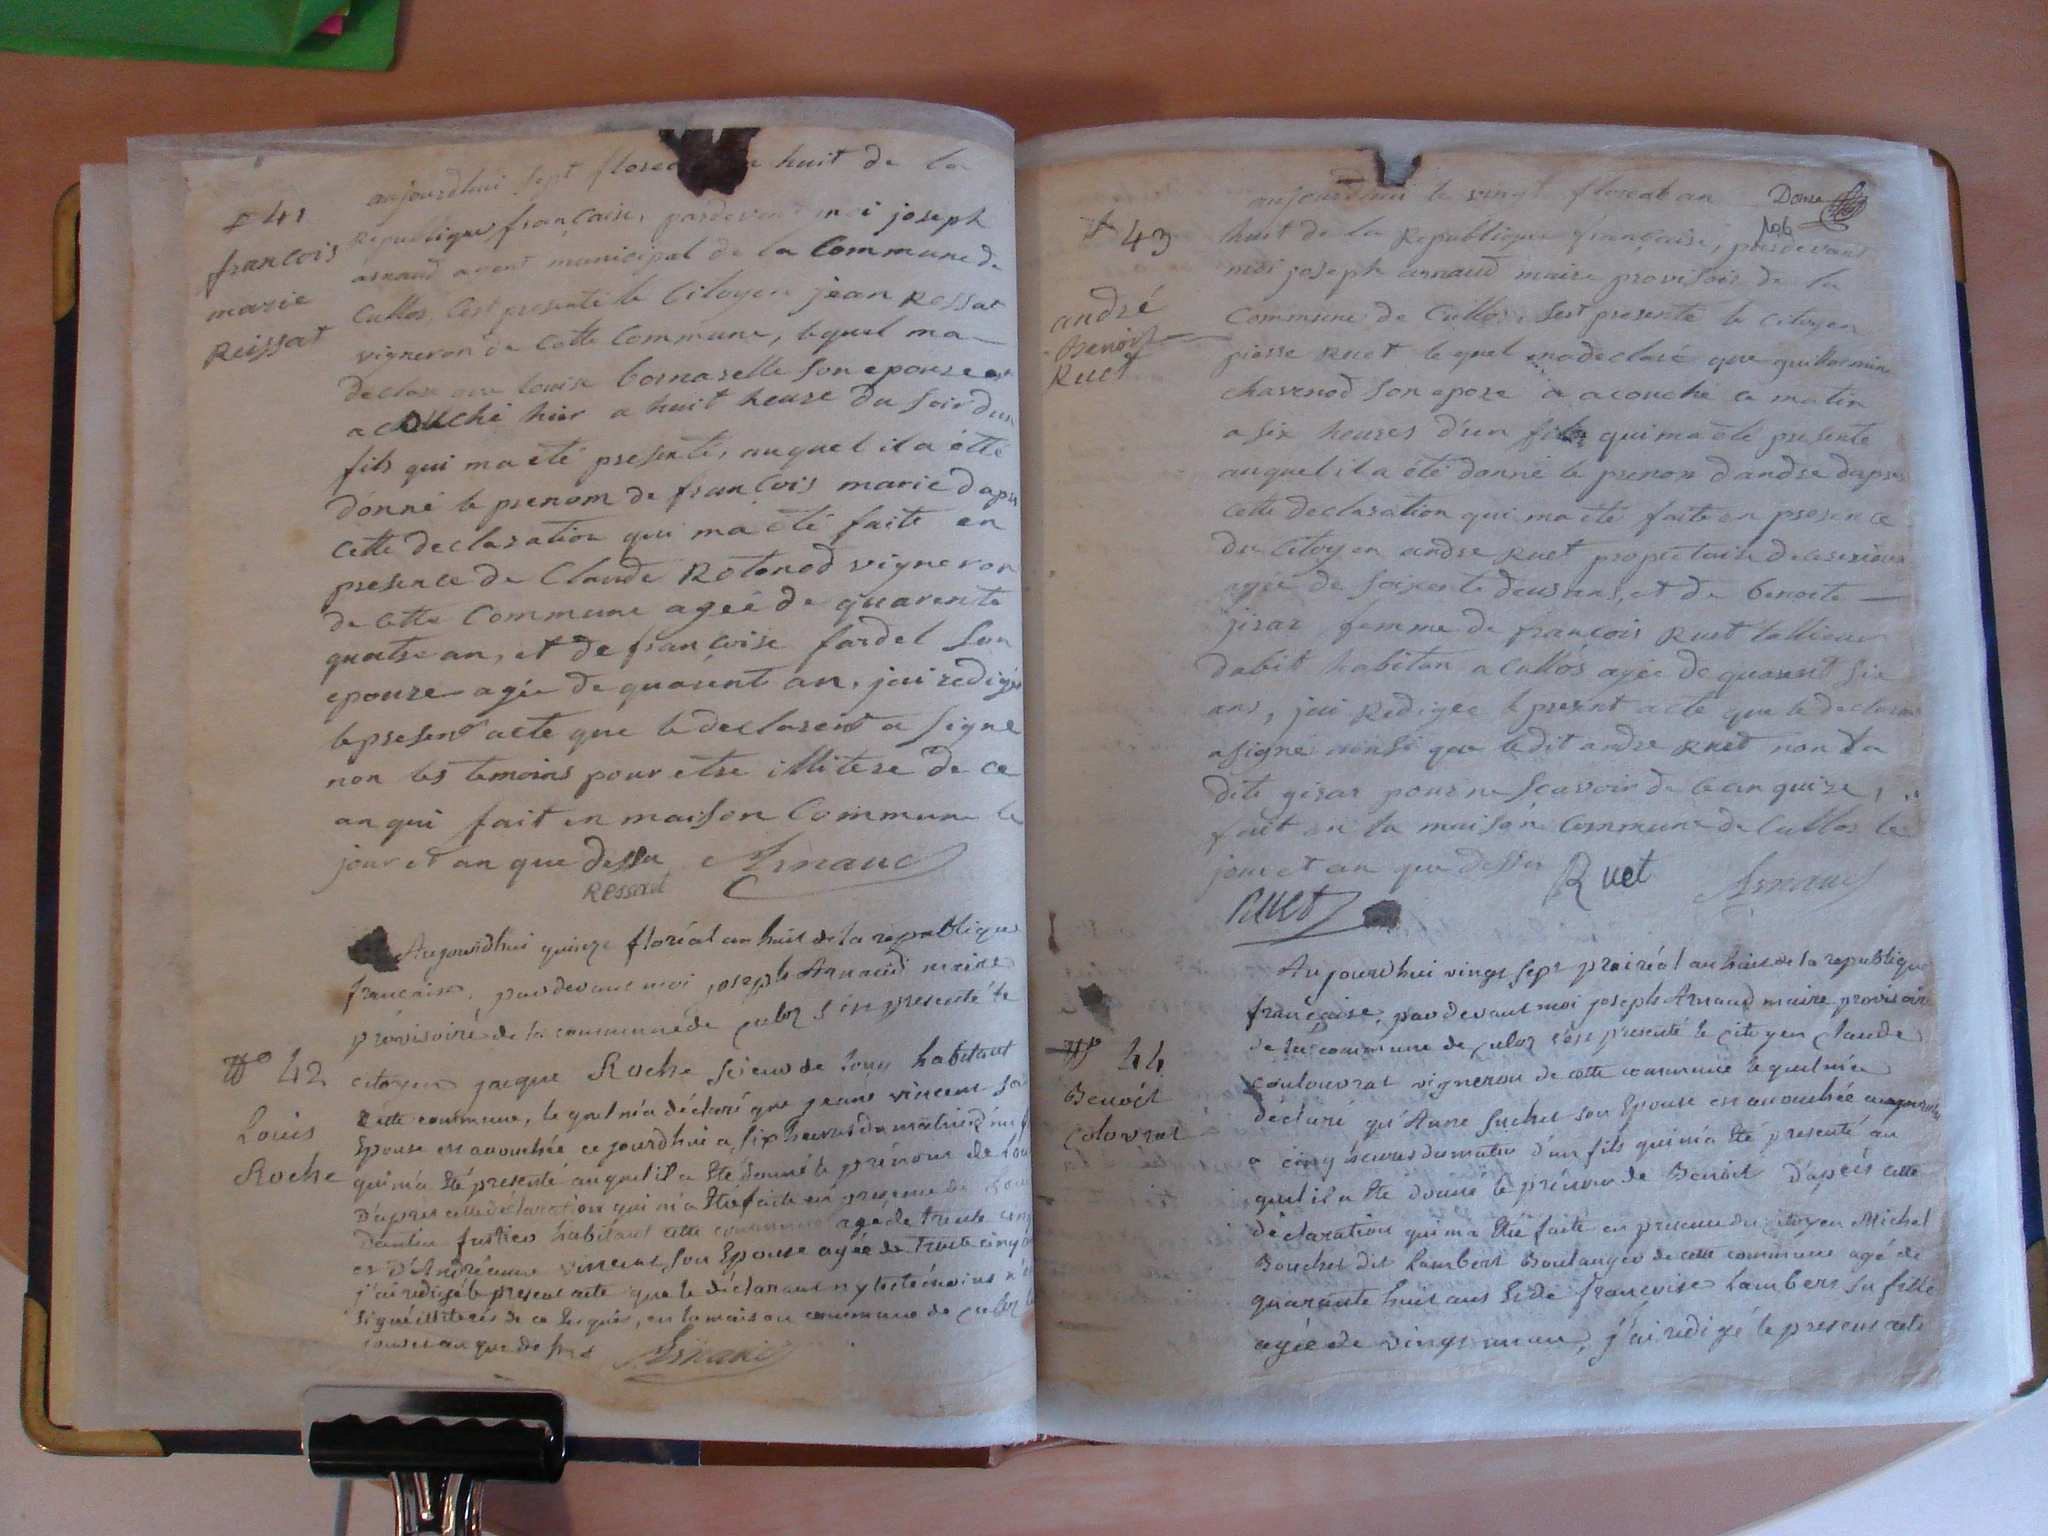 aujourdhui sept floreal huit de la
№ 41
françois
marie
Reissat
Republique française, pardevent moi joseph
arnaud agent municipal de la Commune de
Cullos, cest presenté le Citoyen jean Ressat
vigneron de Cette Commune, lequel ma
declare que louise bornarelle son epouse est
acouché hier a huit heure du soir dun
fils qui ma eté presenté, auquel il a étté
donné le prenom de françois marie dapres
cette declaration qui ma eté faite en
presence de Claude Rotonod vigneron
de cette Commune ageé de quarente
quatre an, et de françoise fardel son
epouze agée de quarent an, jai redigé
le present acte que le declarent a signe
non les temoins pour etre illitere de ce
an qui fait en maison Commune le
jour et an que dessu Arnaud
Ressat
Aujourdhui quinze floréal an huit de la republique
francaise, pardevant moi joseph Arnaud maire
provisoire de la commune de culoz s'est presenté le
№ 42
Louis
Roche
citoyen jacque Roche scieur de long habitant
cette commune, le quel m'a déclaré que jeane vincent son
Epouse est acouchée ce jourdhui a six heures du matin d'un f
qui m'a été presenté auquel il a été donné le prénom de Lou
D'apres cette déclaration qui m'a été faite en presence de
Dantin fustier habitant cette commune agé de trente cinq
et d'Andréanne vincent son Epouse agée de trente cinq
j'ai redigé le present acte que le déclarant n'y les témoins n'
signé illiterés de ce Enquis, en la maison commune de culoz le
jour et an que dessus Arnaud
Douse
106
aujourdhui le vingt floreal an
№ 43
andré
Benoit
Ruet
huit de la Republique française, pardevant
moi joseph arnaud maire provisoir de la
Commune de Cullos, sest presenté le Citoyen
pierre Ruet lequel ma declaré que guillermine
chavenod son epoze a acouché ce matin
a six heures d'un fils qui ma eté presenté
auquel il a été donné le prenon dandre dapres
cette declaration qui ma eté faite en presence
du Citoyen andre Ruet propriétaire de ceserieux
agée de soixente deus ans, et de benoite
jirar femme de françois Ruet tallieur
dabit habitan a Cullos agée de quarent six
ans, jai Redigée le present acte que le declaran
a signé ainsi que ledit andre Ruet non la
dite girar pour ne scavoir de ce anquize,
fait en la maison Commune de Cullos le
jour et an que dessus Ruet Arnaud
Ruet
Aujourdhui vingt sept prairéal an huit de la republique
francaise, pardevant moi joseph Arnaud maire provisoire
de la commune de culoz s'est presenté le citoyen Claude
№ 44
Benoit
Colovrat
coulouvrat vigneron de cette commune lequel m'a
déclaré qu'Anne Suchet son Epouse est acouchée aujourdhu
a cinq heures du matin d'un fils qui m'a été presenté au
quel il a été donné le prénom de Benoit D'après cette
déclaration qui m'a été faite en presence du citoyen Michel
Bouchet dit Lambert Boulanger de cette commune agé de
quarante huit ans & de françoise Lambert sa fille
agée de vingt un an, j'ai redigé le present acte